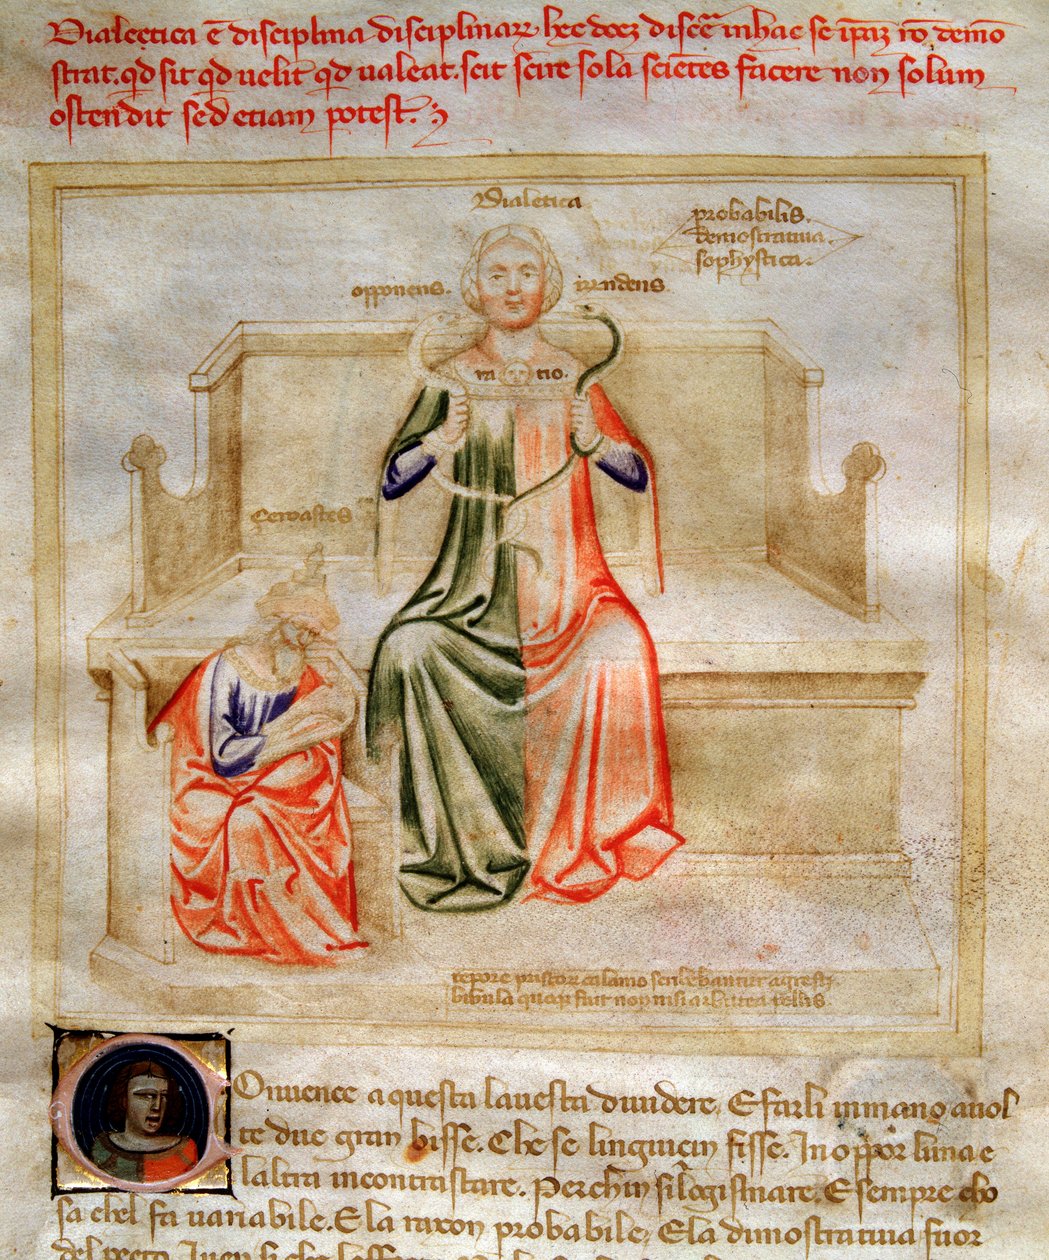 Dialectica ē disciplina disciplinarꝝ hec docꝫ discē in hac se ip̄aꝫ rō demō
strat. qd sit qd uelit qd ualeat. scit scire sola sciētes facere non solum
ostendit sed etiam potest.
Dialetica
probabilis.
demostratiua.
sophystica.
opponens.
rn̄dens.
ra tio.
Çeroastes
tēpore calamo
bibula non nisi
Onuence a questa la uesta diuidere. E farli in mano auol
te due gran bisse. Che se linguein fisse. In oppor luna e
laltra incontrastare. Per chin silogismare. E sempre cho
sa chel fa uariabile. E la raxon probabile. E la dimostratiua fuor